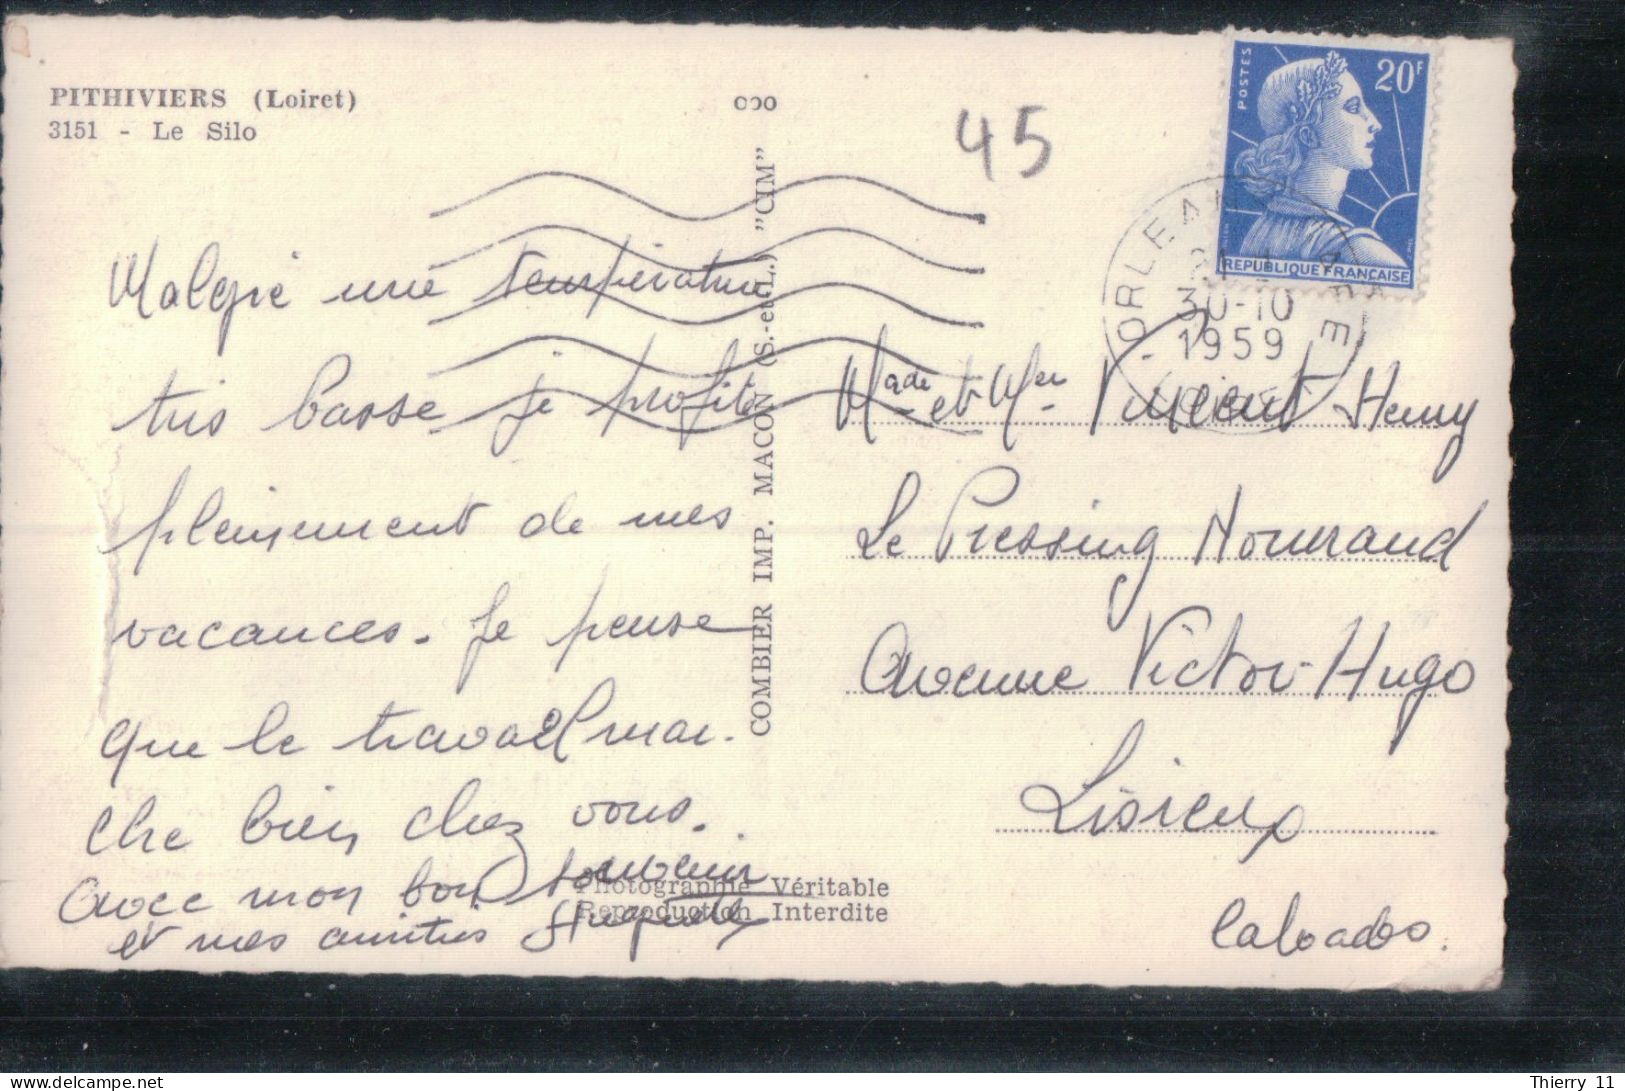 PITHIVIERS (Loiret)
3151 - Le Silo
45
POSTES
20F
REPUBLIQUE FRANÇAISE
ORLEANS GARE
30-10
1959
COMBIER IMP. MACON (S.-et-L.) "CIM"
Malgré une température
très basse je profite
pleinement de mes
vacances. Je pense
que le travail mar-
che bien chez vous.
Avec mon bon souvenir
et mes amitiés
Photographie Véritable
Reproduction Interdite
Made et Mer Vincent Henry
Le Pressing Normand
Avenue Victor-Hugo
Lisieux
Calvados.
Thierry 11